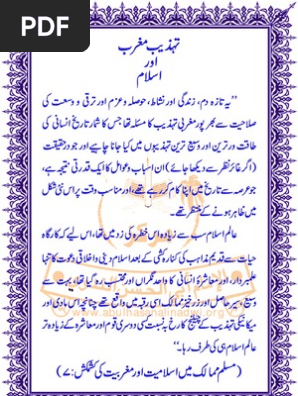 PDF
تہذیب مغرب
اور
اسلام
”یہ تازہ دم، زندگی اور نشاط، حوصلہ وعزم اور ترقی و وسعت کی
صلاحیت سے بھرپور مغربی تہذیب کا مسئلہ تھا جس کا شمار تاریخ انسانی کی
طاقت ور ترین اور وسیع ترین تہذیبوں میں کیا جانا چاہیے اور جو درحقیقت
(اگر غائر نظر سے دیکھا جائے) ان اسباب وعوامل کا ایک قدرتی نتیجہ ہے،
جو عرصہ سے تاریخ میں اپنا کام کر رہے تھے، اور مناسب وقت پر اس نئی شکل
میں ظاہر ہونے کے منتظر تھے۔
عالم اسلام سب سے زیادہ اس خطرہ کی زد میں تھا، اس لیے کہ کارگاہ
حیات سے قدیم مذاہب کی کنارہ کشی کے بعد اسلام دینی واخلاقی دعوت کا تنہا
علمبردار، اور معاشرۂ انسانی کا واحد نگراں اور محتسب رہ گیا تھا، بہت سے
وسیع، سیر حاصل اور زرخیز ممالک اسی رقبہ میں واقع تھے چنانچہ اس مادی اور
میکانیکی تہذیب کے چیلنج کا رخ بہ نسبت کی دوسری قوم اور معاشرہ کے زیادہ تر
عالم اسلام ہی کی طرف رہا۔“
(مسلم ممالک میں اسلامیت اور مغربیت کی کشمکش : ۷)
www.abulhasanalinadwi.org